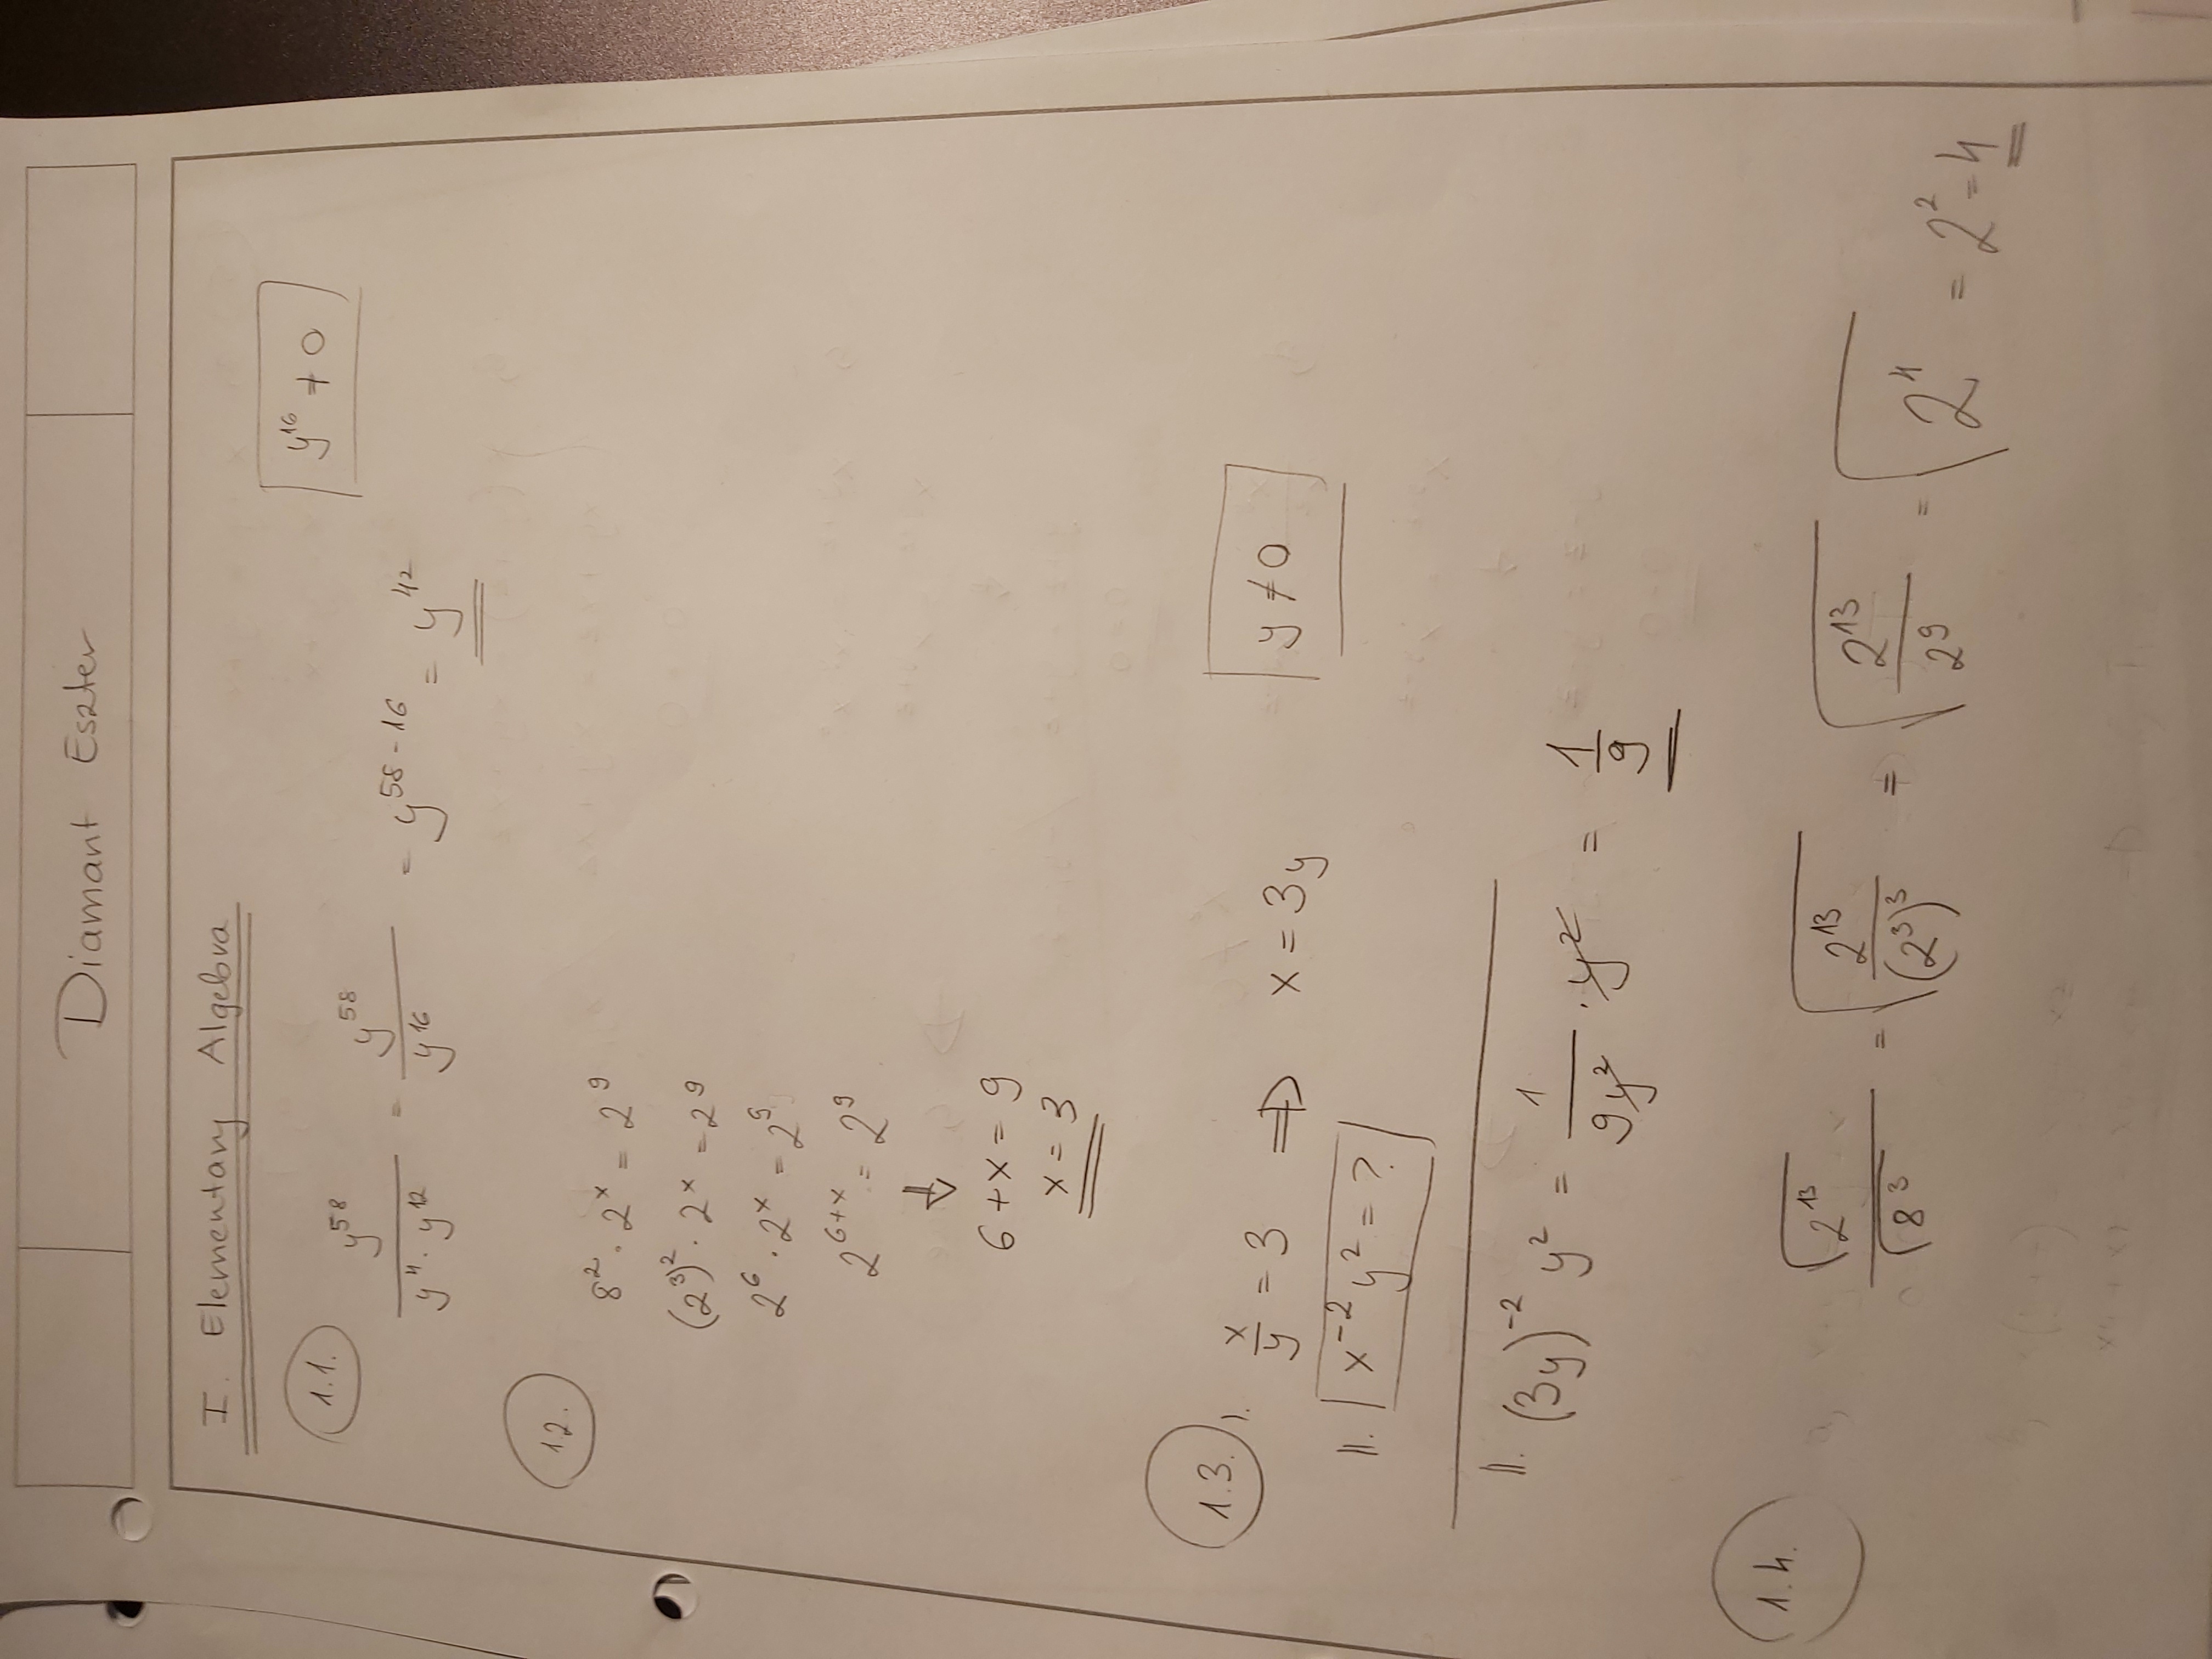 Diamant Eszter
I. Elementary Algebra
1.1. y^58 / (y^4 · y^12) = y^58 / y^16 = y^(58-16) = y^42
y^16 ≠ 0
1.2.
8^2 · 2^x = 2^9
(2^3)^2 · 2^x = 2^9
2^6 · 2^x = 2^9
2^(6+x) = 2^9
⇓
6 + x = 9
x = 3
1.3. I. x/y = 3 ⇒ x = 3y
y ≠ 0
II. x^-2 y^2 = ?
II. (3y)^-2 y^2 = 1/(9y^2) · y^2 = 1/9
1.4. √(2^13) / √(8^3) = √(2^13 / (2^3)^3) = √(2^13 / 2^9) = √(2^4) = 2^2 = 4